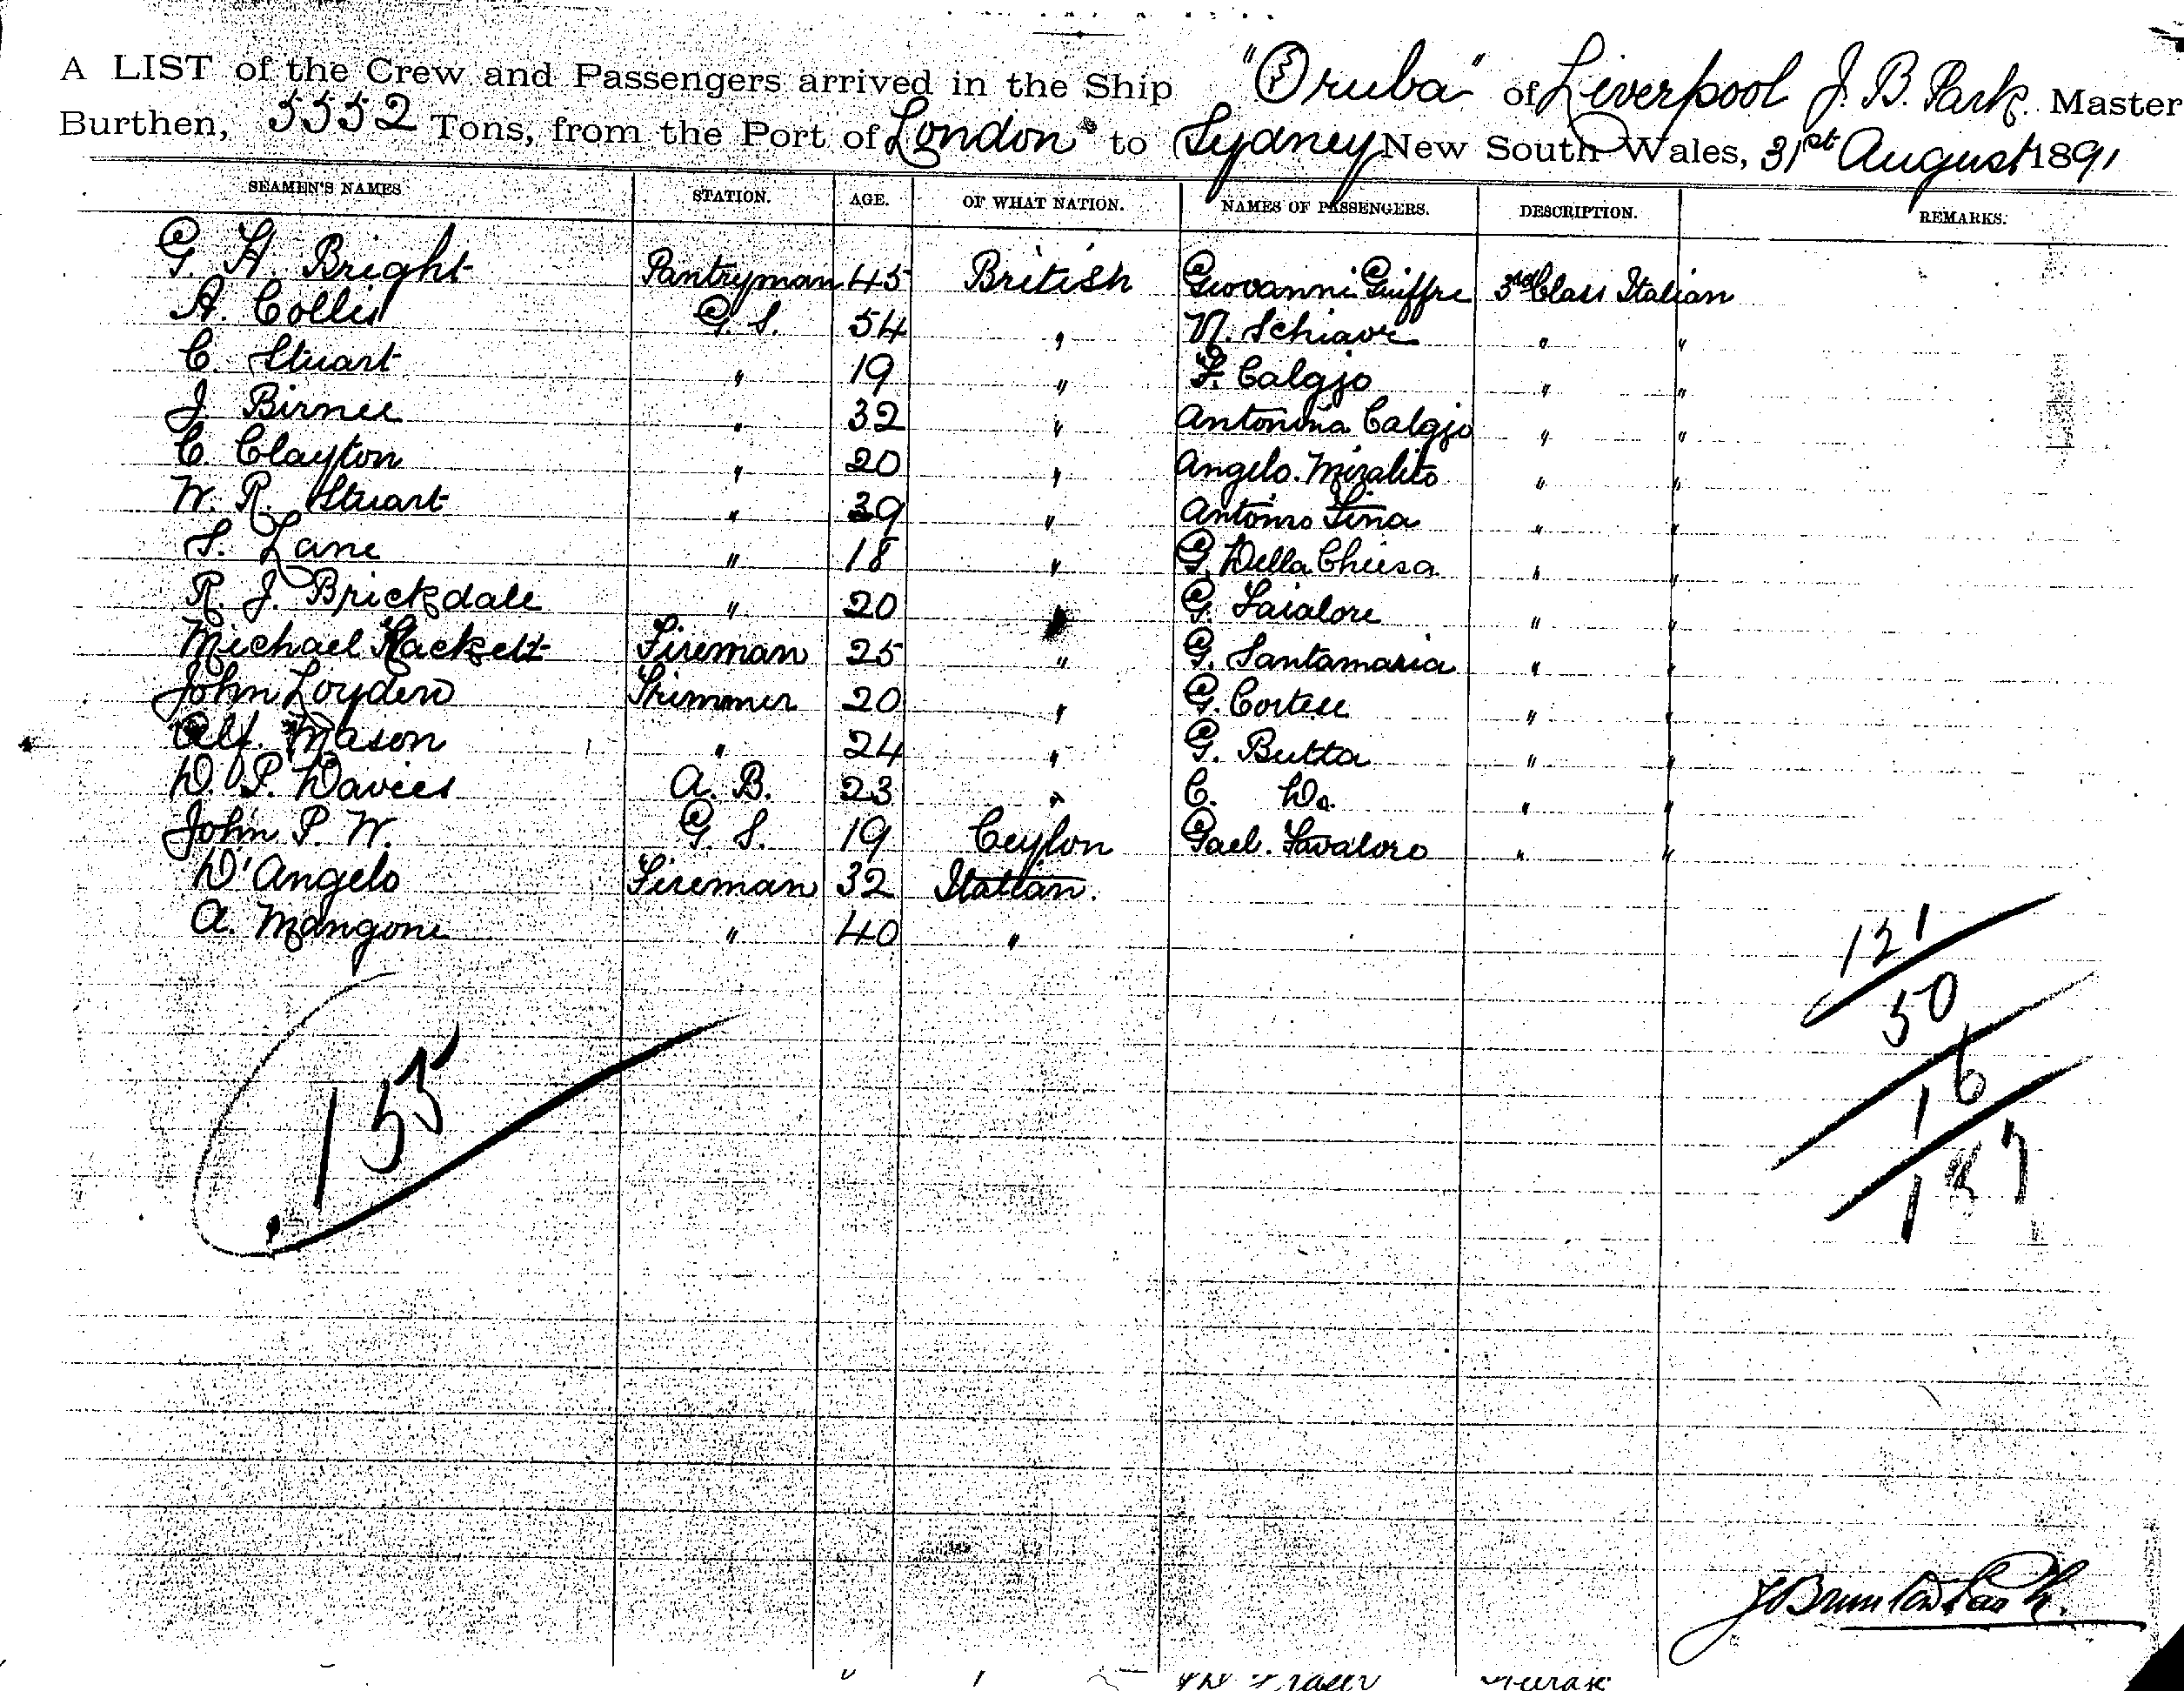 A LIST of the Crew and Passengers arrived in the Ship "Oruba" of Liverpool J. B. Park. Master
Burthen, 5552 Tons, from the Port of London to Sydney New South Wales, 31st August 1891
SEAMEN'S NAMES. STATION. AGE. OF WHAT NATION. NAMES OF PASSENGERS. DESCRIPTION. REMARKS.
G. H. Bright Pantryman 45 British Giovanni Guiffre 3rd Class Italian
A. Collis G. S. 54 " N. Schiave " "
C. Stuart " 19 " F. Calgjo " "
J Birnee " 32 " Antonina Calgjo " "
C. Clayton " 20 " Angelo. Miralito " "
W. R. Stuart " 39 " Antonio Fina " "
S. Lane " 18 " G. Della Chiesa " "
R. J. Brickdale " 20 " G. " "
Michael Hackett Fireman 25 " G. Santamaria " "
John Loyden Trimmer 20 " G. Cortese " "
Alf. Mason " 24 " G. Butta " "
D. P. Davies A. B. 23 " C. Do. " "
John P. W. G. S. 19 Ceylon Gael. Favaloro " "
D'Angelo Fireman 32 Italian.
A. Mangone " 40 "
121
50
16
155
187
J Brunton Park.